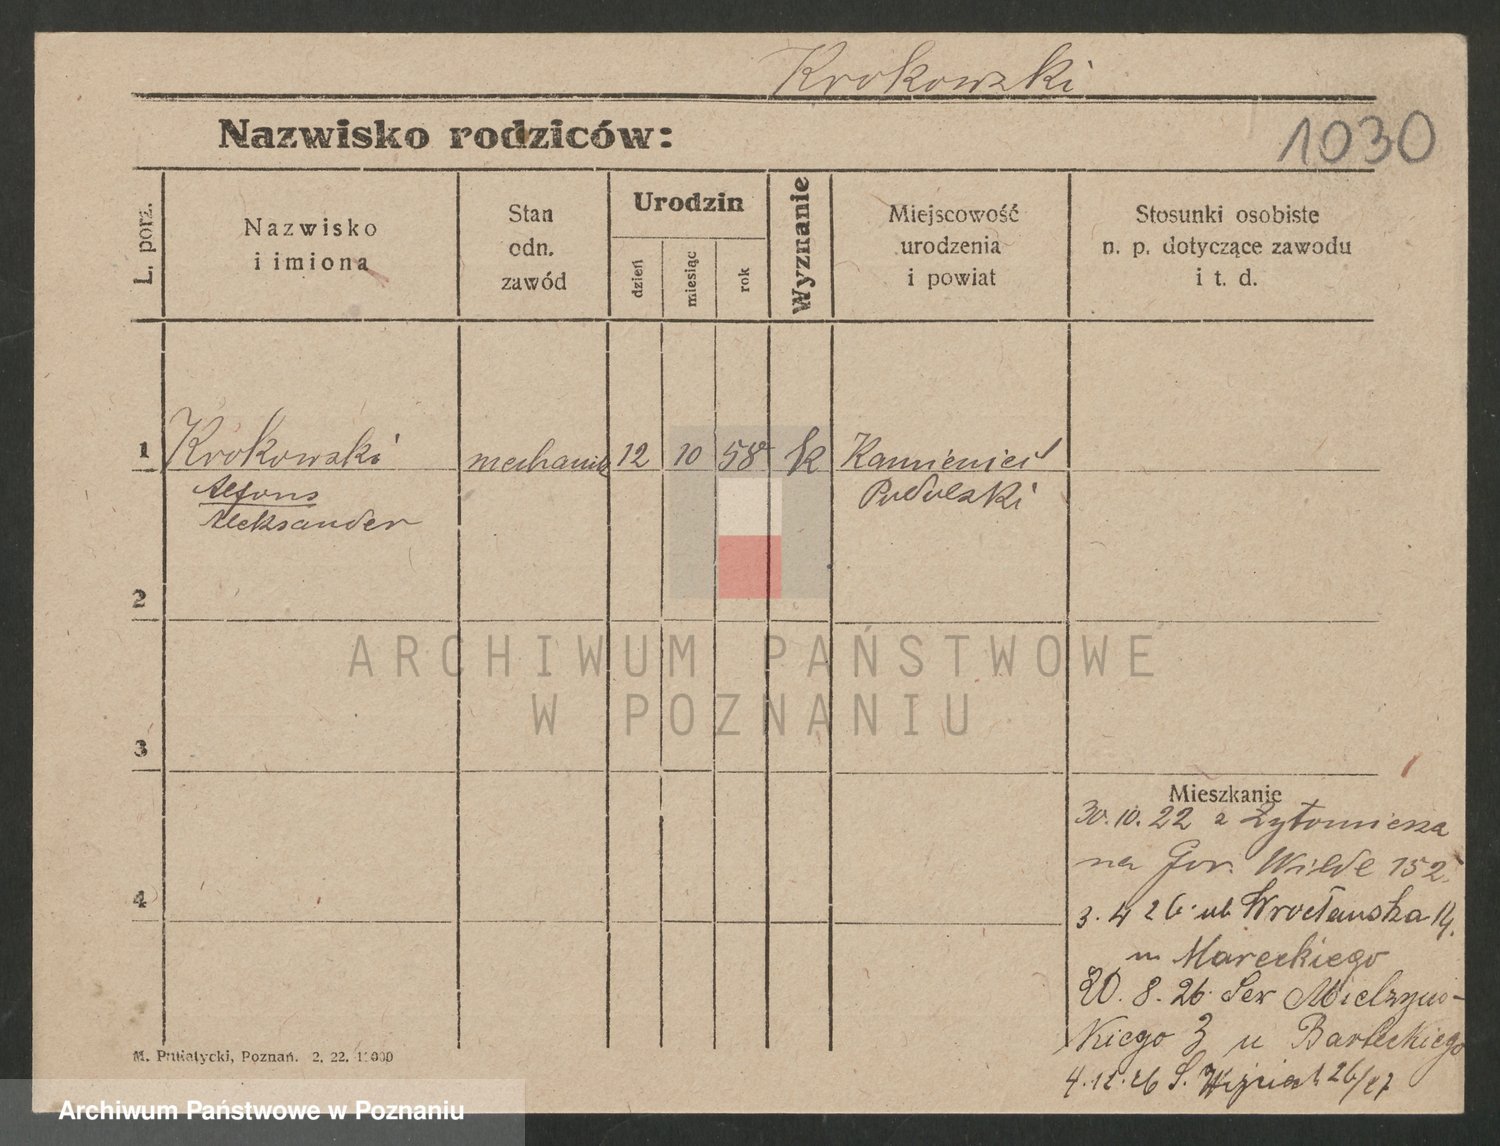 Krokowski
Nazwisko rodziców:
1030
L. porz.
Nazwisko
i imiona
Stan
odn.
zawód
Urodzin
dzień
miesiąc
rok
Wyznanie
Miejscowość
urodzenia
i powiat
Stosunki osobiste
n. p. dotyczące zawodu
i t. d.
1 Krokowski mechanik 12 10 58 k Kamieniec
Alfons Podolski
Aleksander
2
ARCHIWUM PAŃSTWOWE
W POZNANIU
3
Mieszkanie
30.10.22 z Żytomierza
na Gor. Wilde 152.
4
3. 4 26. ul. Wrocławska 14.
u Mareckiego
20. 8. 26. Sew Mielzyns-
kiego 3 u Barteckiego
4.12.26 S. 26/27
M. Putiatycki, Poznań. 2, 22. 11000
Archiwum Państwowe w Poznaniu